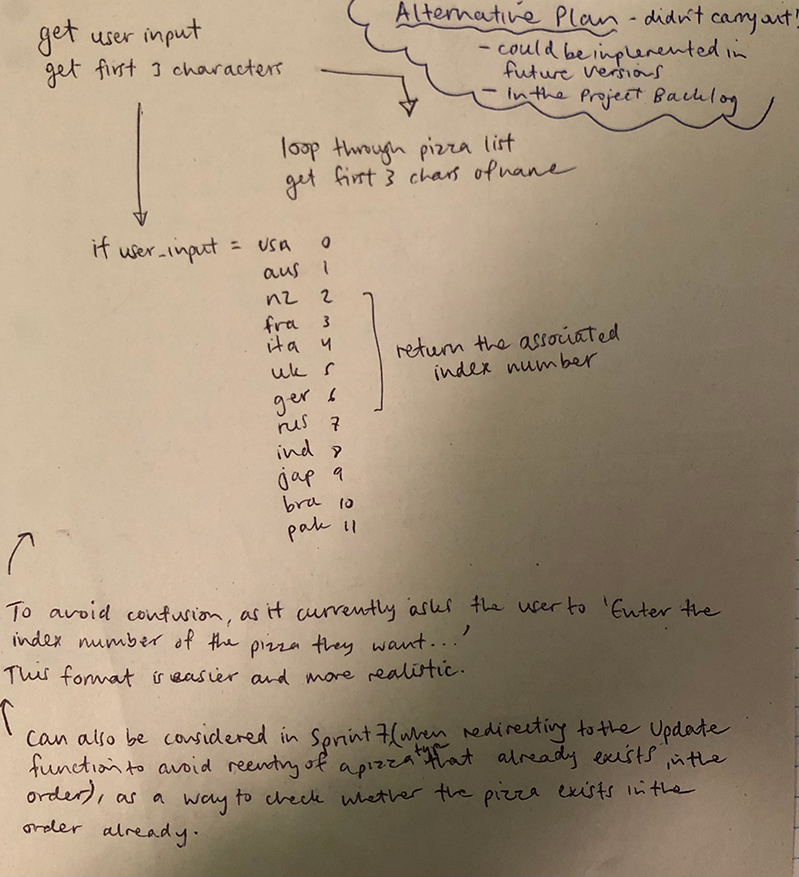 Alternative Plan - didn't carry out!
- could be implemented in
future versions
- In the Project Backlog
get user input
get first 3 characters
loop through pizza list
get first 3 chars of name
if user_input = usa 0
aus 1
nz 2
fra 3
ita 4
uk 5
ger 6
rus 7
ind 8
jap 9
bra 10
pak 11
return the associated
index number
To avoid confusion, as it currently asks the user to 'Enter the
index number of the pizza they want...'
This format is easier and more realistic.
Can also be considered in Sprint 7 (when redirecting to the Update
function to avoid reentry of a pizza type that already exists in the
order), as a way to check whether the pizza exists in the
order already.